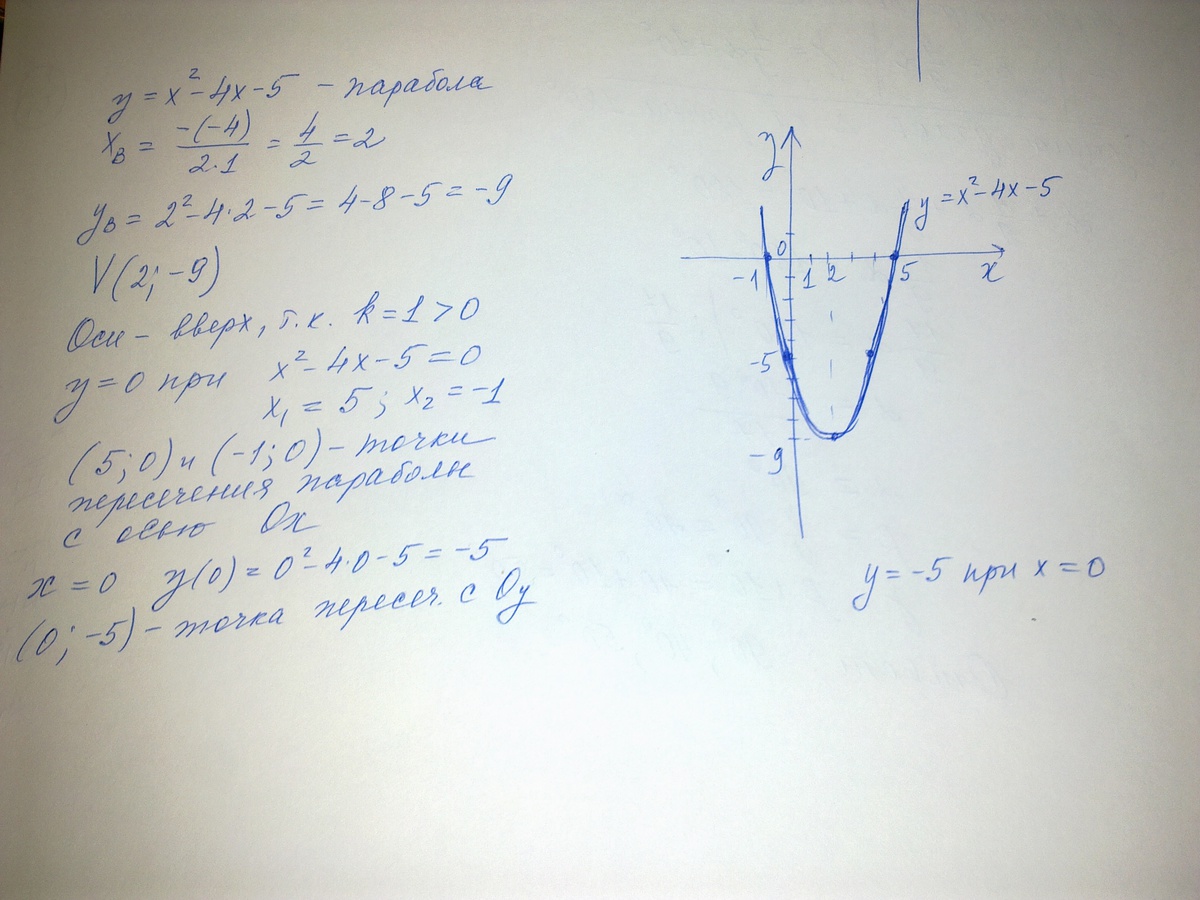 y = x² - 4x - 5 - парабола
x_B = -(-4)/2·1 = 4/2 = 2
y_B = 2² - 4·2 - 5 = 4 - 8 - 5 = -9
V(2; -9)
Оси - вверх, т.к. k = 1 > 0
y = 0 при x² - 4x - 5 = 0
x₁ = 5; x₂ = -1
(5; 0) и (-1; 0) - точки
пересечения параболы
с осью Ох
x = 0 y(0) = 0² - 4·0 - 5 = -5
(0; -5) - точка пересеч. с Оу
y
y = x² - 4x - 5
0
-1 1 2 5 x
-5
-9
y = -5 при x = 0